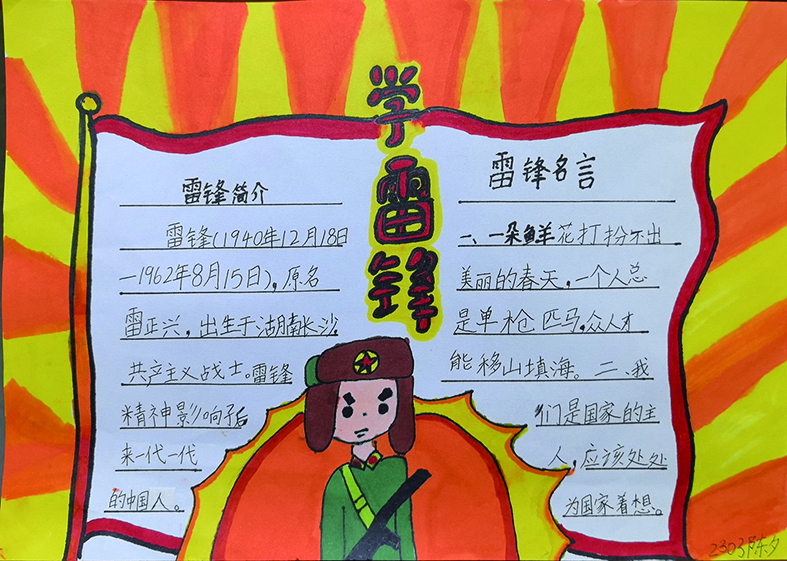 学雷锋
雷锋简介
雷锋(1940年12月18日
—1962年8月15日),原名
雷正兴,出生于湖南长沙
共产主义战士。雷锋
精神影响了后
来一代一代
的中国人。
雷锋名言
一、一朵鲜花打扮不出
美丽的春天,一个人总
是单枪匹马,众人才
能移山填海。二、我
们是国家的主
人,应该处处
为国家着想。
2303陈夕